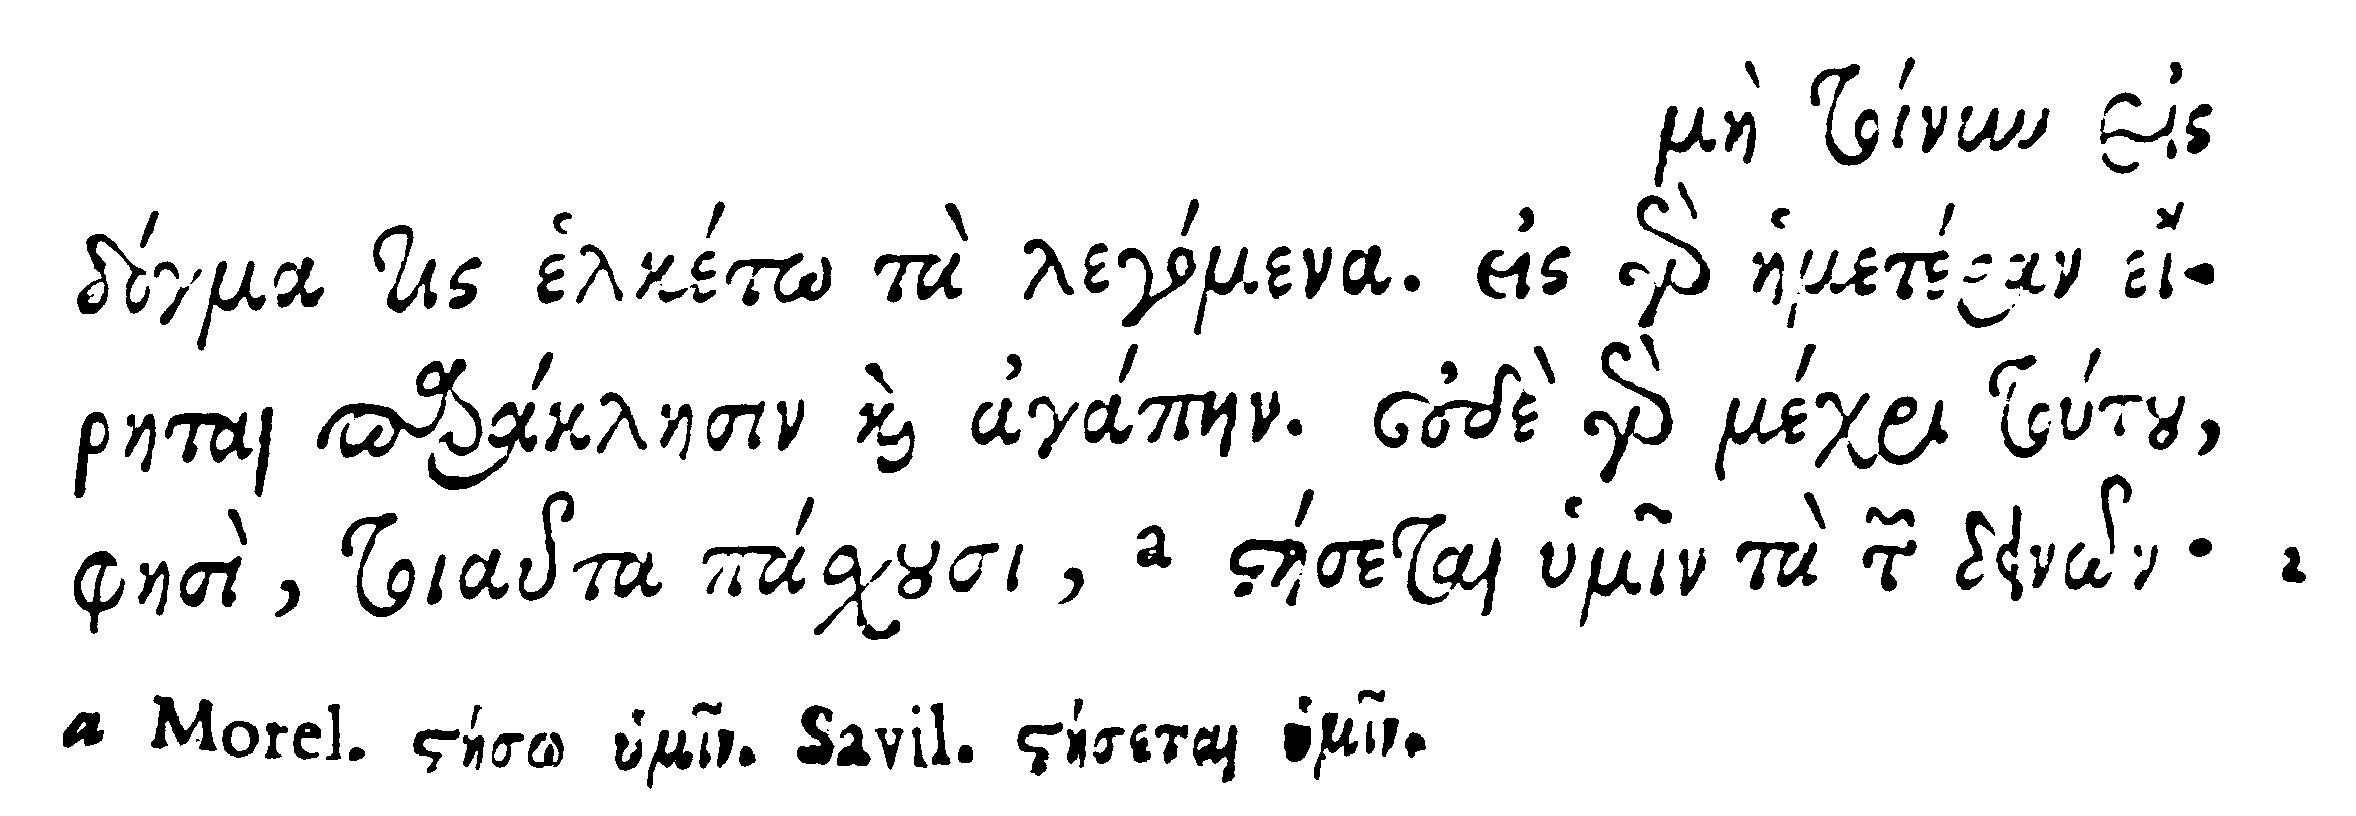 μὴ τοίνυν εἰς
δόγμα τις ἑλκέτω τὰ λεγόμενα. εἰς γὰρ ἡμετέραν εἴ-
ρηται παράκλησιν καὶ ἀγάπην. οὐδὲ γὰρ μέχρι τούτου,
φησὶ, τοιαῦτα πάσχουσι, a στήσεται ὑμῖν τὰ τῶν δεινῶν· 2
a Morel. στήσω ὑμῖν. Savil. στήσεται ὑμῖν.